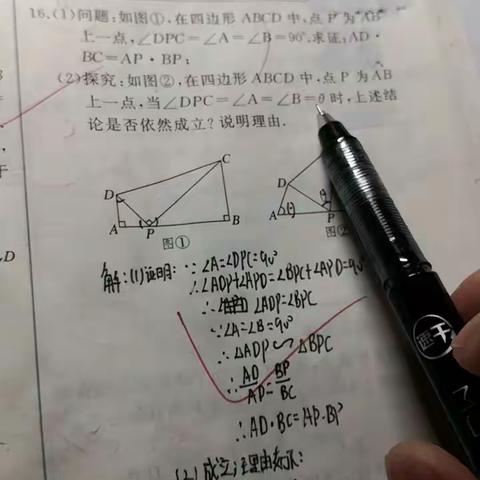 16.(1)问题:如图①,在四边形 ABCD 中,点 P 为 AB
上一点,∠DPC=∠A=∠B=90°.求证:AD·
BC=AP·BP;
(2)探究:如图②,在四边形 ABCD 中,点 P 为 AB
上一点,当∠DPC=∠A=∠B=θ时,上述结
论是否依然成立?说明理由.
D
C
A
P
B
图①
D
θ
A
P
图②
解:(1)证明:∵∠A=∠DPC=90°
∴∠ADP+∠APD=∠BPC+∠APD=90°
∴∠ADP=∠BPC
∵∠A=∠B=90°
∴△ADP∽△BPC
∴AD/AP=BP/BC
∴AD·BC=AP·BP
(2)成立,理由如下:
于
D